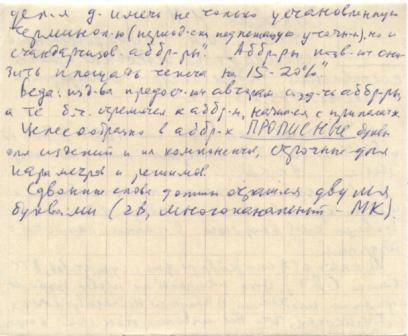 дел-я д. иметь не только установленную
терминол-ю (период-ски подлежащую уточн-ю), но и
стандартизов. аббр-ры". "Аббр-ры позв-ют сни-
зить площадь текста на 15-20%".
Беда: изд-ва предост-ли авторам изд-ть аббр-ры,
а те б.ч. стремятся к аббр-м, начиная с
Целесообразно в аббр-х ПРОПИСНЫЕ буквы
для изделий и их компонентов, строчные - для
параметров и режимов.
Сдвоенные слова должны двумя
буквами (многоканальный - МК).